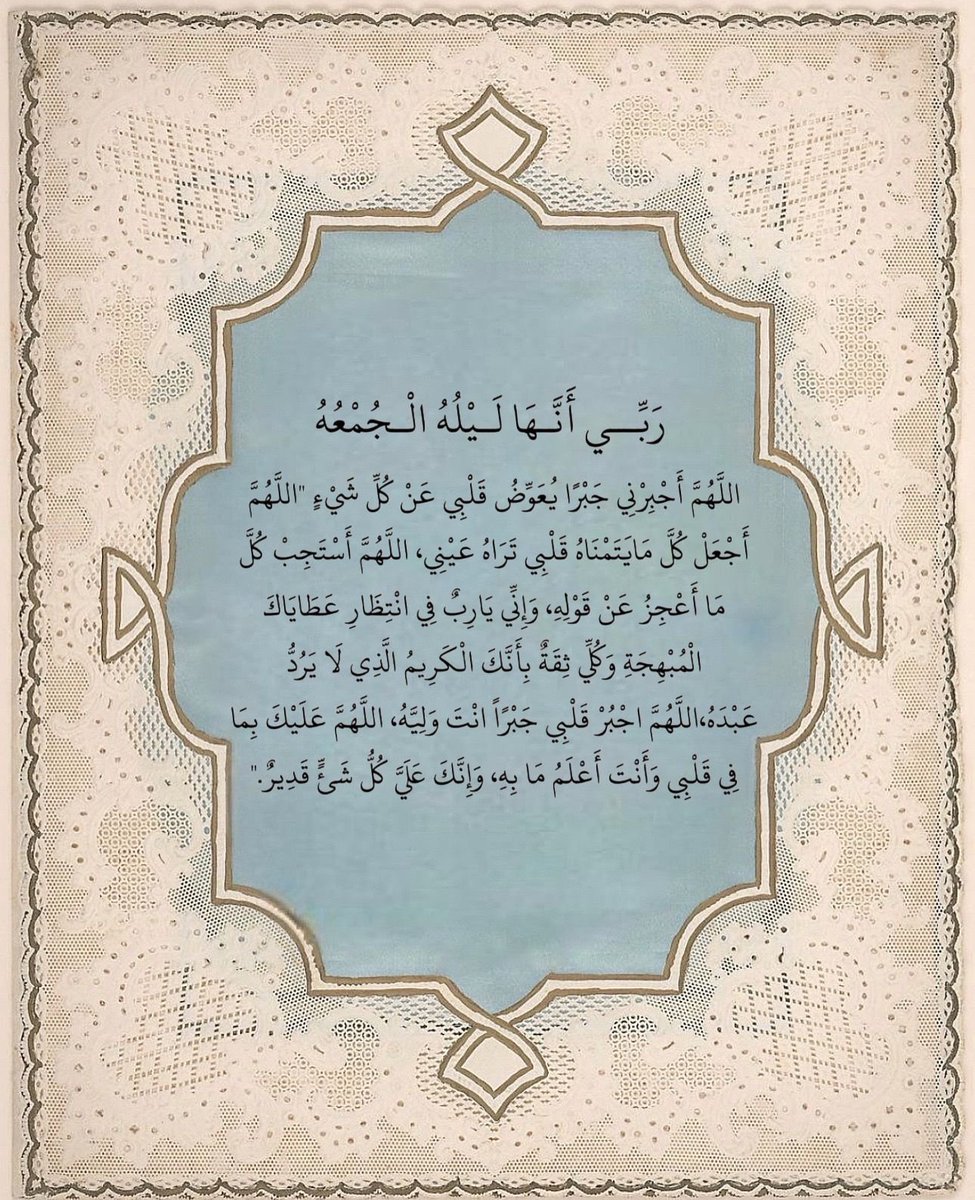 رَبِّـــي أَنَّـهَا لَـيْلُهُ الْـجُمْعُهُ
اللَّهُمَّ أَجْبِرْنِي جَبْرًا يُعَوِّضُ قَلْبِي عَنْ كُلِّ شَيْءٍ "اللَّهُمَّ
أَجْعَلْ كُلَّ مَايَتَمْنَاهُ قَلْبِي تَرَاهُ عَيْنِي، اللَّهُمَّ أَسْتَجِبْ كُلَّ
مَا أَعْجِزُ عَنْ قَوْلِهِ، وَإِنِّي يَارِبٌ فِي انْتِظَارِ عَطَايَاكَ
الْمُبْهِجَةِ وَكُلِّي ثِقَةٌ بِأَنَّكَ الْكَرِيمُ الَّذِي لَا يَرُدُّ
عَبْدَهُ،اللَّهُمَّ اجْبُرْ قَلْبِي جَبْرَاً انْتَ وَلِيَّهُ، اللَّهُمَّ عَلَيْكَ بِمَا
فِي قَلْبِي وَأَنْتَ أَعْلَمُ مَا بِهِ، وَإِنَّكَ عَلَيَّ كُلُّ شَئٍّ قَدِيرٌ."